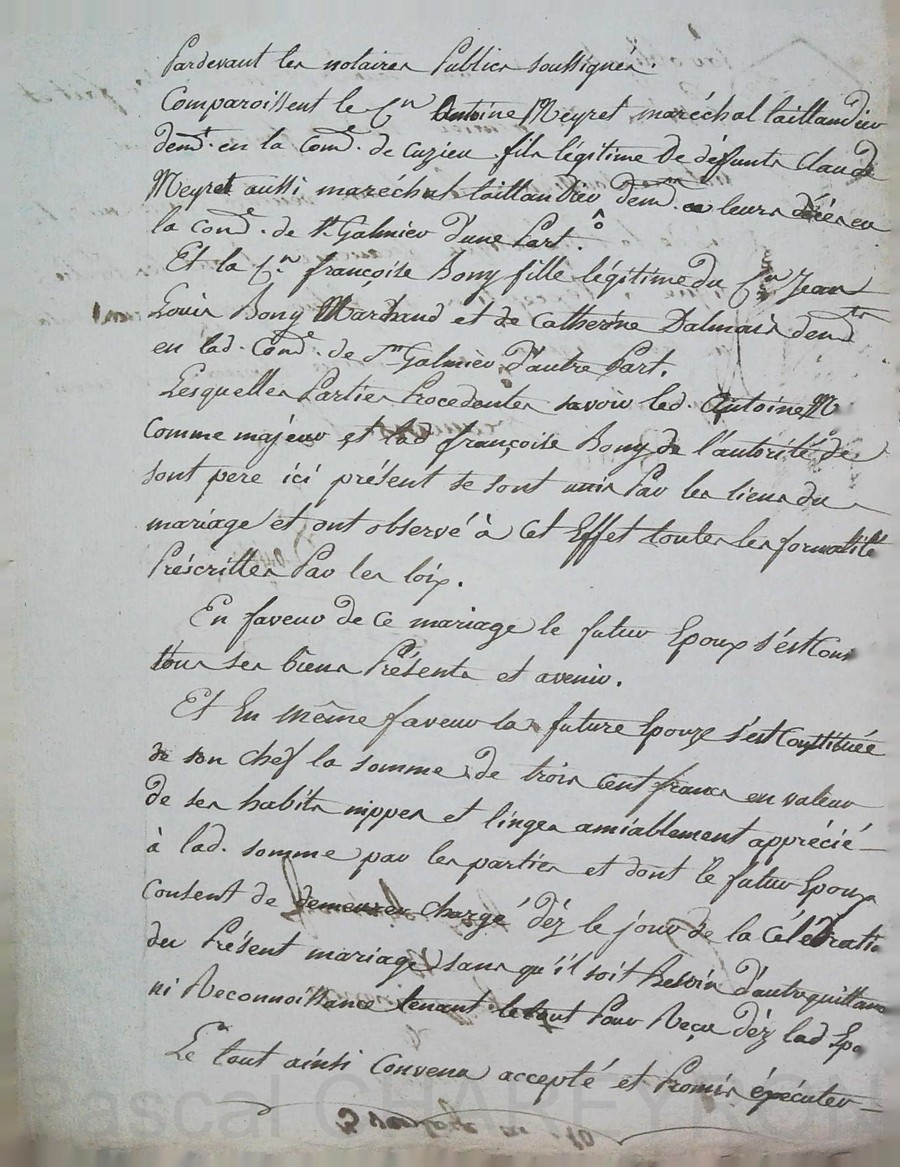 Pardevant les notaires Publics soussignés
Comparoissent le Cn Antoine Meyret maréchal taillandier
demt. en la come. de cuzieu fils légitime De défunts claude
Meyret aussi maréchal taillandier demt. leurs décès en
la come. de St. Galmier d'une Part.
Et la Cne. françoise Bony fille légitime du Cn Jean
Louis Bony Marchand et de Catherine Dalmais demts
en lad. Come. de St Galmier d'autre Part.
Lesquelles Parties Procedentes savoir led. Antoine M
Comme majeur et lad françoise Bony de l'autorité de
sont pere ici présent se sont unis Par les liens du
mariage et ont observé à Cet Effet toutes les formalité
Préscrittes Par les loix.
En faveur de Ce mariage le futur Epoux s'est Cons
tous ses biens Présents et avenir.
Et En même faveur la future Epouze s'est Constituée
de son chef la somme de trois Cent francs en valeur
De ses habits nippes et linges amiablement apprécié
à lad. somme par les parties et dont le futur Epoux
Consent de demeurer Chargé déz le jour de la Célébratio
du Présent mariage sans qu'il soit Besoin d'autre quittance
ni Reconnoissance tenant le tout Pour Reçu Déz lad Epo
Le tout ainsi Convenu accepté et Promis éxécuter
Pascal CHAREYRON